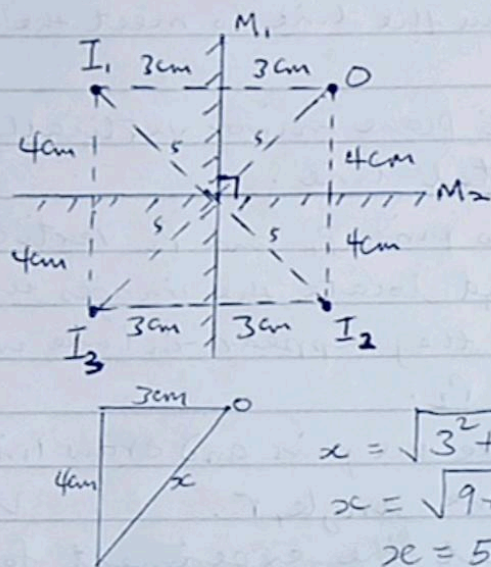 M₁
I₁ 3cm 3cm O
4cm 5 5 4cm
M₂
4cm 5 5 4cm
3cm 3cm
I₃ I₂
3cm O
4cm x
x = √3² +
x = √9
x = 5